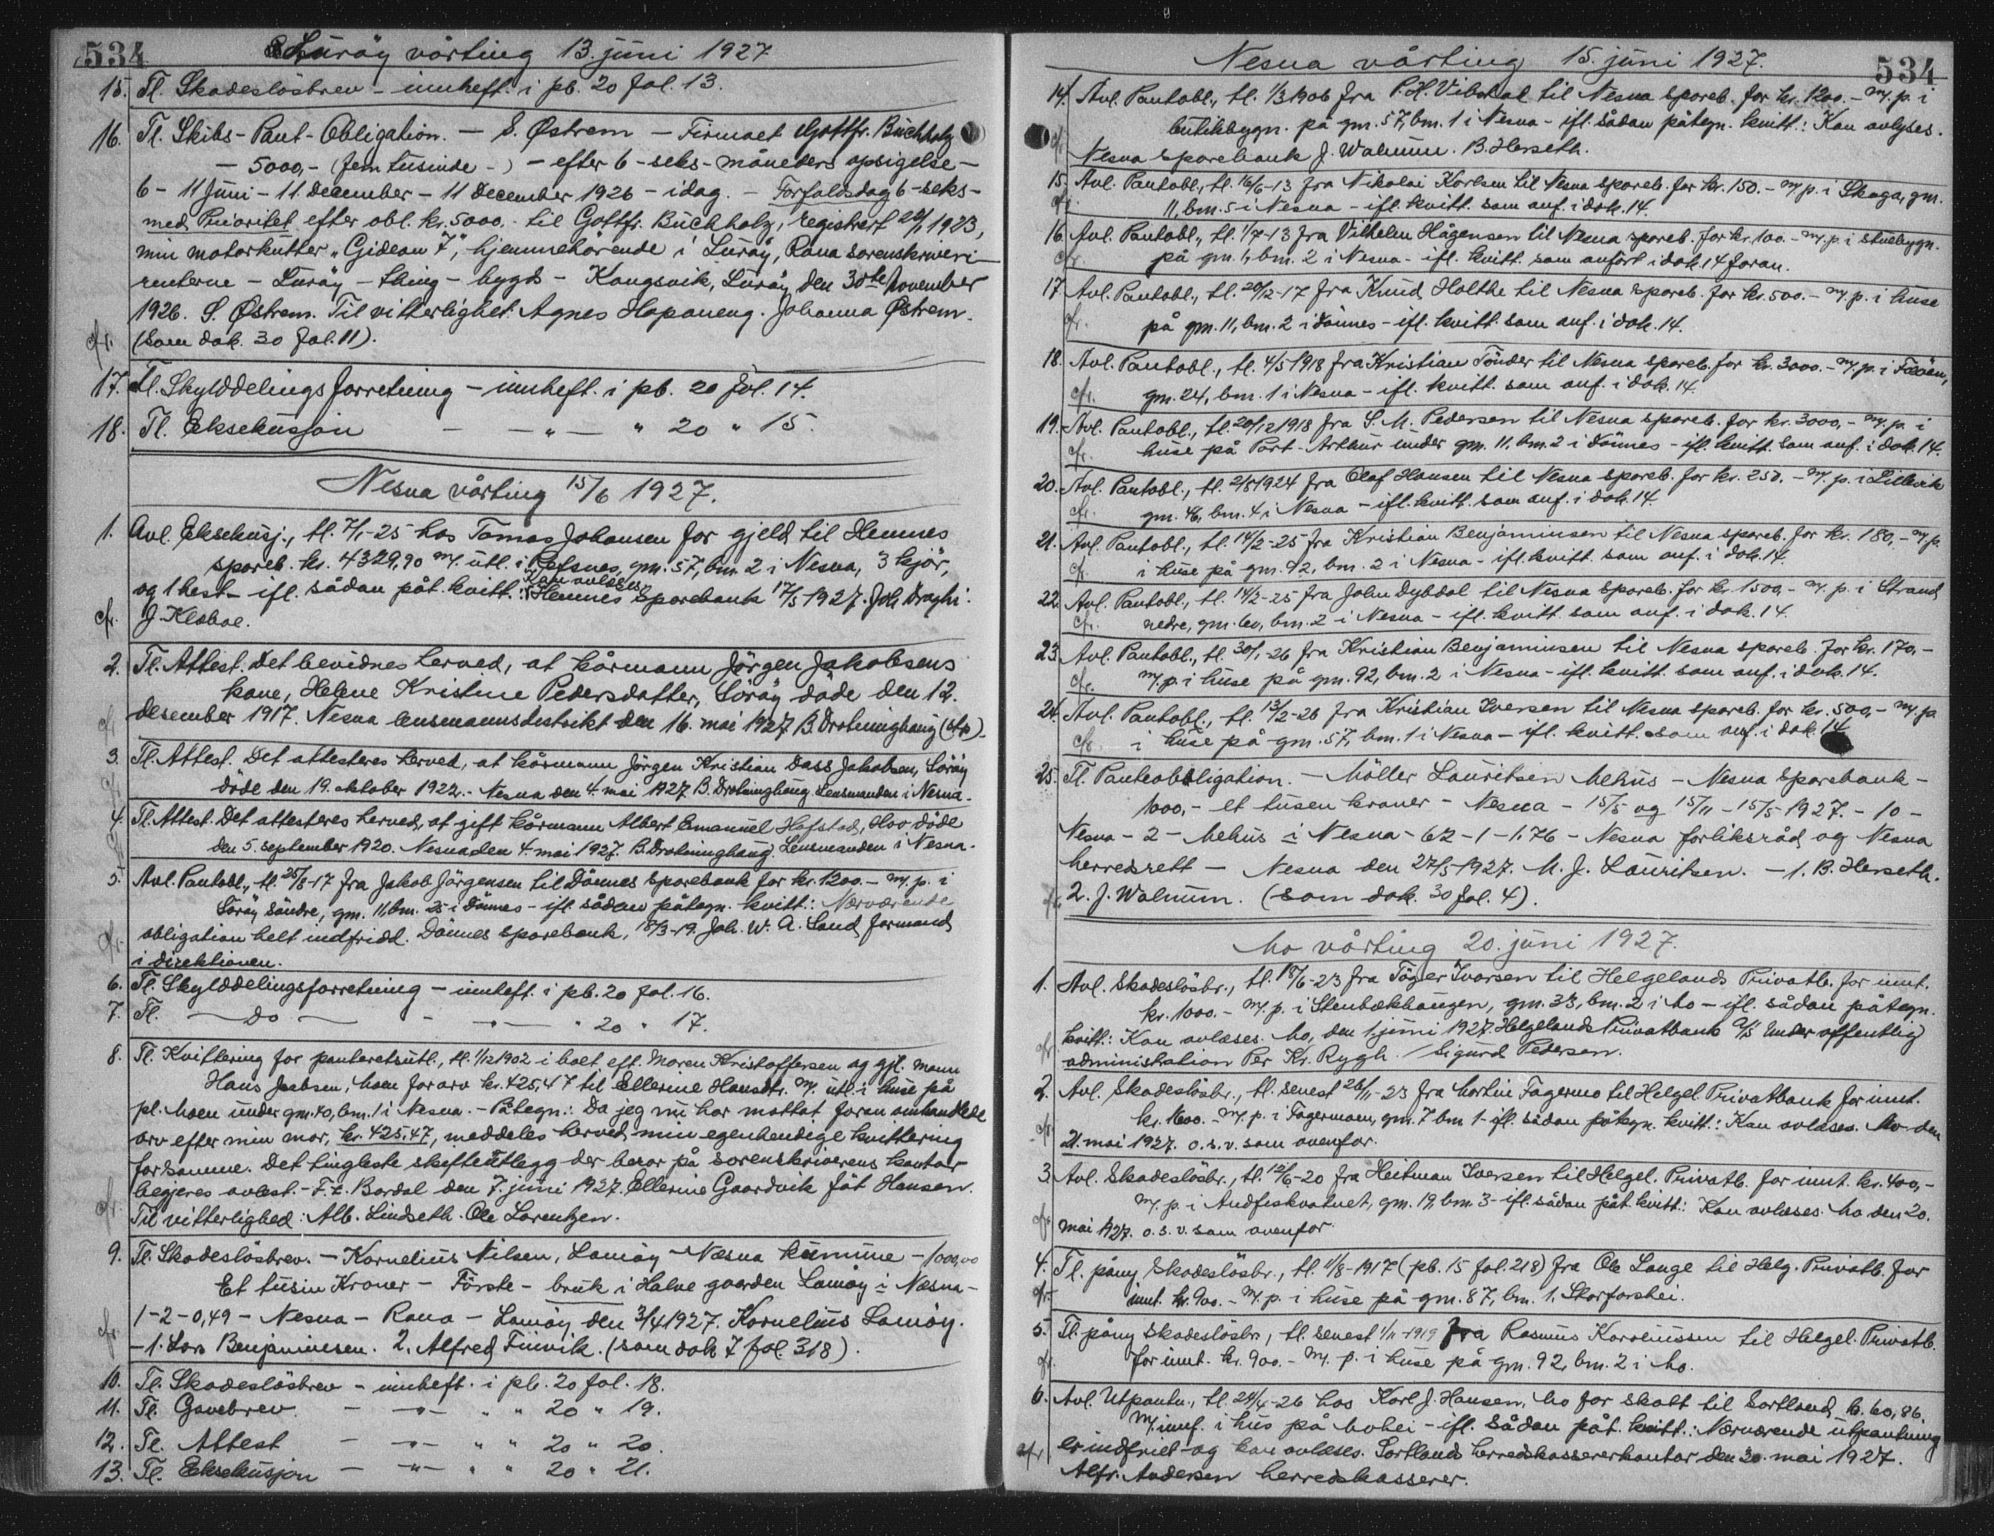 534
Lurøy vårting 13. juni 1927
15. Tl. Skadesløsbrev - innheft. i pb. 20 fol. 13.
16. Tl. Skibs-Pant-Obligation. - S. Østrem - Firmaet Gottfr. Büchholz
- 5000,- (fem tusinde -) - efter 6 - seks - måneders opsigelse -
6 - 11 Juni - 11 December - 11 December 1926 - idag. - Forfaldsdag 6 - seks -
med Prioritet efter obl. kr. 5000. til Gottfr. Büchholz, registrert 1923,
min motorkutter "Gideon 7", hjemmehørende i Lurøy, Rana sorenskriveri
renterne - Lurøy - thing - bygd - Kongsvik, Lurøy den 30te November
1926. S. Østrem. Til vitterlighet: Agnes Hopaneng. Johanna Østrem.
cfr. (Som dok. 30 fol. 11).
17. Tl. Skylddelingsforretning - innheft. i pb. 20 fol. 14.
18. Tl. Eksekusjon - - " - " 20 " 15.
Nesna vårting 15/6 1927.
1. Avl. Eksekusj., tl. 7/1-25 hos Tomas Johansen for gjeld til Hemnes
spareb. kr. 4329,90 m/ utl. i Refsnes, gm. 57, bm. 2 i Nesna, 3 kjør,
og 1 hest - ifl. sådan påt. kvitt.: Kan avlæses Hemnes Sparebank 17/5 1927. Joh. Draghi.
cfr. J. Klæboe.
2. Tl. Attest. Det bevidnes herved, at kårmann Jörgen Jakobsens
kone, Helene Kristine Pedersdatter, Sörøy döde den 12.
desember 1917. Nesna lensmannsdistrikt den 16. mai 1927 B. Drotninghaug
3. Tl. Attest. Det attesteres herved, at kårmann Jörgen Kristian Dass Jakobsen, Sörøy
döde den 19. oktober 1922. - Nesna den 4. mai 1927. B. Drotninghaug. Lensmanden i Nesna.
4. Tl. Attest. Det attesteres herved, at gift kårmann Albert Emanuel Hofstad, Hov döde
den 5. september 1920. Nesna den 4. mai 1927. B. Drotninghaug. Lensmanden i Nesna.
5. Avl. Pantobl., tl. 25/8-17 fra Jakob Jörgensen til Dönnes Sparebank for kr. 1200. - m/ p. i
Sörøy söndre, gm. 11, bm. 25 i Dönnes - ifl. sådan påtegn. kvitt.: Nærværende
obligation helt indfridd. Dönnes sparebank, 18/3-19. Joh. W. A. Sand formand
i direktionen.
6. Tl. Skylddelingsforretning - innheft. i pb. 20 fol. 16.
7. Tl. - Do - - " - " 20 " 17.
8. Tl. Kvittering for panteretsutl., tl. 1/12 1902 i boet eft. Maren Kristoffersen og gjl. mann
Hans Jacobsen, Moen for arv kr. 425,47 til Ellerine Hansdtr. m/ utl. i huse på
pl. Moen under gm. 40, bm. 1 i Nesna. - Påtegn.: Da jeg nu har mottat foran omhandlede
arv efter min mor, kr. 425,47, meddeles herved min egenhendige kvittering
for samme. Det tingleste skifteutlegg der beror på sorenskriverens kontor
begjeres avlest. - Bardal den 7. juni 1927. Ellerine Gaardvik föt Hansen.
Til vitterlighed: Alb. Lindseth. Ole Lorentzen.
9. Tl. Skadeslösbrev. - Kornelius Nilsen, Lamöy - Næsna kumune - 1000,00
Et tusin Kroner - Förste - bruk i Halve gaarden Lamöy i Næsna -
1-2-0,49 - Nesna - Rana - Lamöy den 3/4 1927. Kornelius Lamöy.
cfr. - 1. Lars Benjaminsen. 2. Alfred Finvik. (Som dok 7 fol 318).
10. Tl. Skadeslösbrev - innheft. i pb. 20 fol. 18.
11. Tl. Gavebrev - " - " " 20 " 19.
12. Tl. Attest - " - " " 20 " 20.
13. Tl. Eksekusjon - " - " " 20 " 21.
Nesna vårting 15. juni 1927.
534
14. Avl. Pantobl., tl. 1/3 1906 fra P. H. Vibstad til Nesna spareb. for kr. 1200. - m/ p. i
butikbygn. på gm. 57, bm. 1 i Nesna - ifl. sådan påtegn. kvitt.: Kan avlyses.
cfr. Nesna sparebank J. Walnum. B. Herseth.
15. Avl. Pantobl., tl. 16/6-13 fra Nikolai Karlsen til Nesna spareb. for kr. 150. - m/ p. i Skaga, gm.
cfr. 11, bm. 5 i Nesna - ifl. kvitt. som anf. i dok. 14.
16. Avl. Pantobl., tl. 1/7-13 fra Vilhelm Hågensen til Nesna spareb. for kr. 100. - m/ p. i stuebygn.
cfr. på gm. 1, bm. 2 i Nesna - ifl. kvitt. som anført i dok. 14 foran.
17. Avl. Pantobl., tl. 20/12-17 fra Knud Holthe til Nesna spareb. for kr. 500. - m/ p. i huse
cfr. på gm. 11, bm. 2 i Dönnes - ifl. kvitt. som anf. i dok. 14.
18. Avl. Pantobl., tl. 4/5 1918 fra Kristian Tönder til Nesna spareb. for kr. 3000. - m/ p. i
cfr. gm. 24, bm. 1 i Nesna - ifl. kvitt. som anf. i dok. 14.
19. Avl. Pantobl., tl. 20/12 1918 fra S. M. Pedersen til Nesna spareb. for kr. 3000,- m/ p. i
cfr. huse på Port-Arthur under gm. 11, bm. 2 i Dönnes - ifl. kvitt. som anf. i dok. 14.
20. Avl. Pantobl., tl. 2/5 1924 fra Olaf Hansen til Nesna spareb. for kr. 250. - m/ p. i Lillevik
cfr. gm. 46, bm. 4 i Nesna - ifl. kvitt. som anf. i dok. 14.
21. Avl. Pantobl., tl. 14/2-25 fra Kristian Benjaminsen til Nesna spareb. for kr. 180,- m/ p.
cfr. i huse på gm. 92, bm. 2 i Nesna - ifl. kvitt. som anf. i dok. 14.
22. Avl. Pantobl., tl. 14/2-25 fra John Dybdal til Nesna spareb. for kr. 1500,- m/ p. i Strand
cfr. nedre, gm. 60, bm. 2 i Nesna - ifl. kvitt. som anf. i dok. 14.
23. Avl. Pantobl., tl. 30/1-26 fra Kristian Benjaminsen til Nesna spareb. for kr. 170,-
cfr. m/ p. i huse på gm. 92, bm. 2 i Nesna - ifl. kvitt. som anf. i dok. 14.
24. Avl. Pantobl., tl. 13/2-26 fra Kristian Iversen til Nesna spareb. for kr. 500,- m/ p.
cfr. i huse på gm. 57, bm. 1 i Nesna - ifl. kvitt. som anf. i dok. 14
25. Tl. Panteobligation. - Möller Lauritsen Mehus - Nesna Sparebank -
1000,- et tusen kroner - Nesna - 15/5 og 15/11 - 15/5-1927. - 10 -
Nesna - 2 - Mehus i Nesna - 62-1-1,76 - Nesna forliksråd og Nesna
herredsrett - Nesna den 27/5 1927. M. J. Lauritsen. - 1. B. Herseth.
2. J. Walnum. (Som dok. 30 fol. 4).
Mo vårting 20. juni 1927.
1. Avl. Skadeslösbr., tl. 18/6-23 fra Töger Ivarsen til Helgelands Privatb. for innt.
kr. 1000. - m/ p. i Stenbækhaugen, gm. 33, bm. 2 i Mo - ifl. sådan påtegn.
cfr. kvitt.: Kan avlæses. Mo, den 1. juni 1927. Helgelands Privatbank A/S under offentlig
administration Per Kr. Rygh. / Sigurd Pedersen.
2. Avl. Skadeslösbr., tl. senest 26/11-23 fra Martin Fagermo til Helgel. Privatbank for innt.
cfr. kr. 1600. - m/ p. i Fagermoen, gm. 7 bm 1 - ifl. sådan påtegn. kvitt.: Kan avlæses. Mo den
21. mai 1927. o.s.v. som ovenfor.
3. Avl. Skadeslösbr., tl. 12/6-20 fra Heitman Iversen til Helgel. Privatb. for innt. kr. 400,-
cfr. m/ p. i Andfiskvatnet, gm. 19, bm. 3 - ifl. sådan påt. kvitt.: Kan avlæses. Mo den 20.
mai 1927. o.s.v. som ovenfor
4. Tl. påny Skadeslösbr., tl. 11/8-1917 (pb. 15 fol. 218) fra Ole Lange til Helg. Privatb. for
cfr. innt. kr. 900. - m/ p. i huse på gm. 87, bm. 1, Storforshei.
5. Tl. påny Skadeslösbr., tl. senest 1/11-1919 fra Rasmus Korneliussen til Helgel. Privatb.
cfr. for innt. kr. 900. - m/ p. i huse på gm. 92, bm. 2 i Mo.
6. Avl. Utpantn., tl. 24/4-26 hos Karl J. Hansen, Mo for skatt til Sortland, kr. 60,86.
m/ innf. i hus på Mohei - ifl. sådan påt. kvitt.: Nærværende utpantning
cfr. er indfriet og kan avlæses. Sortland herredskassererkontor den 20. mai 1927.
Alfr. Andersen herredskasserer.